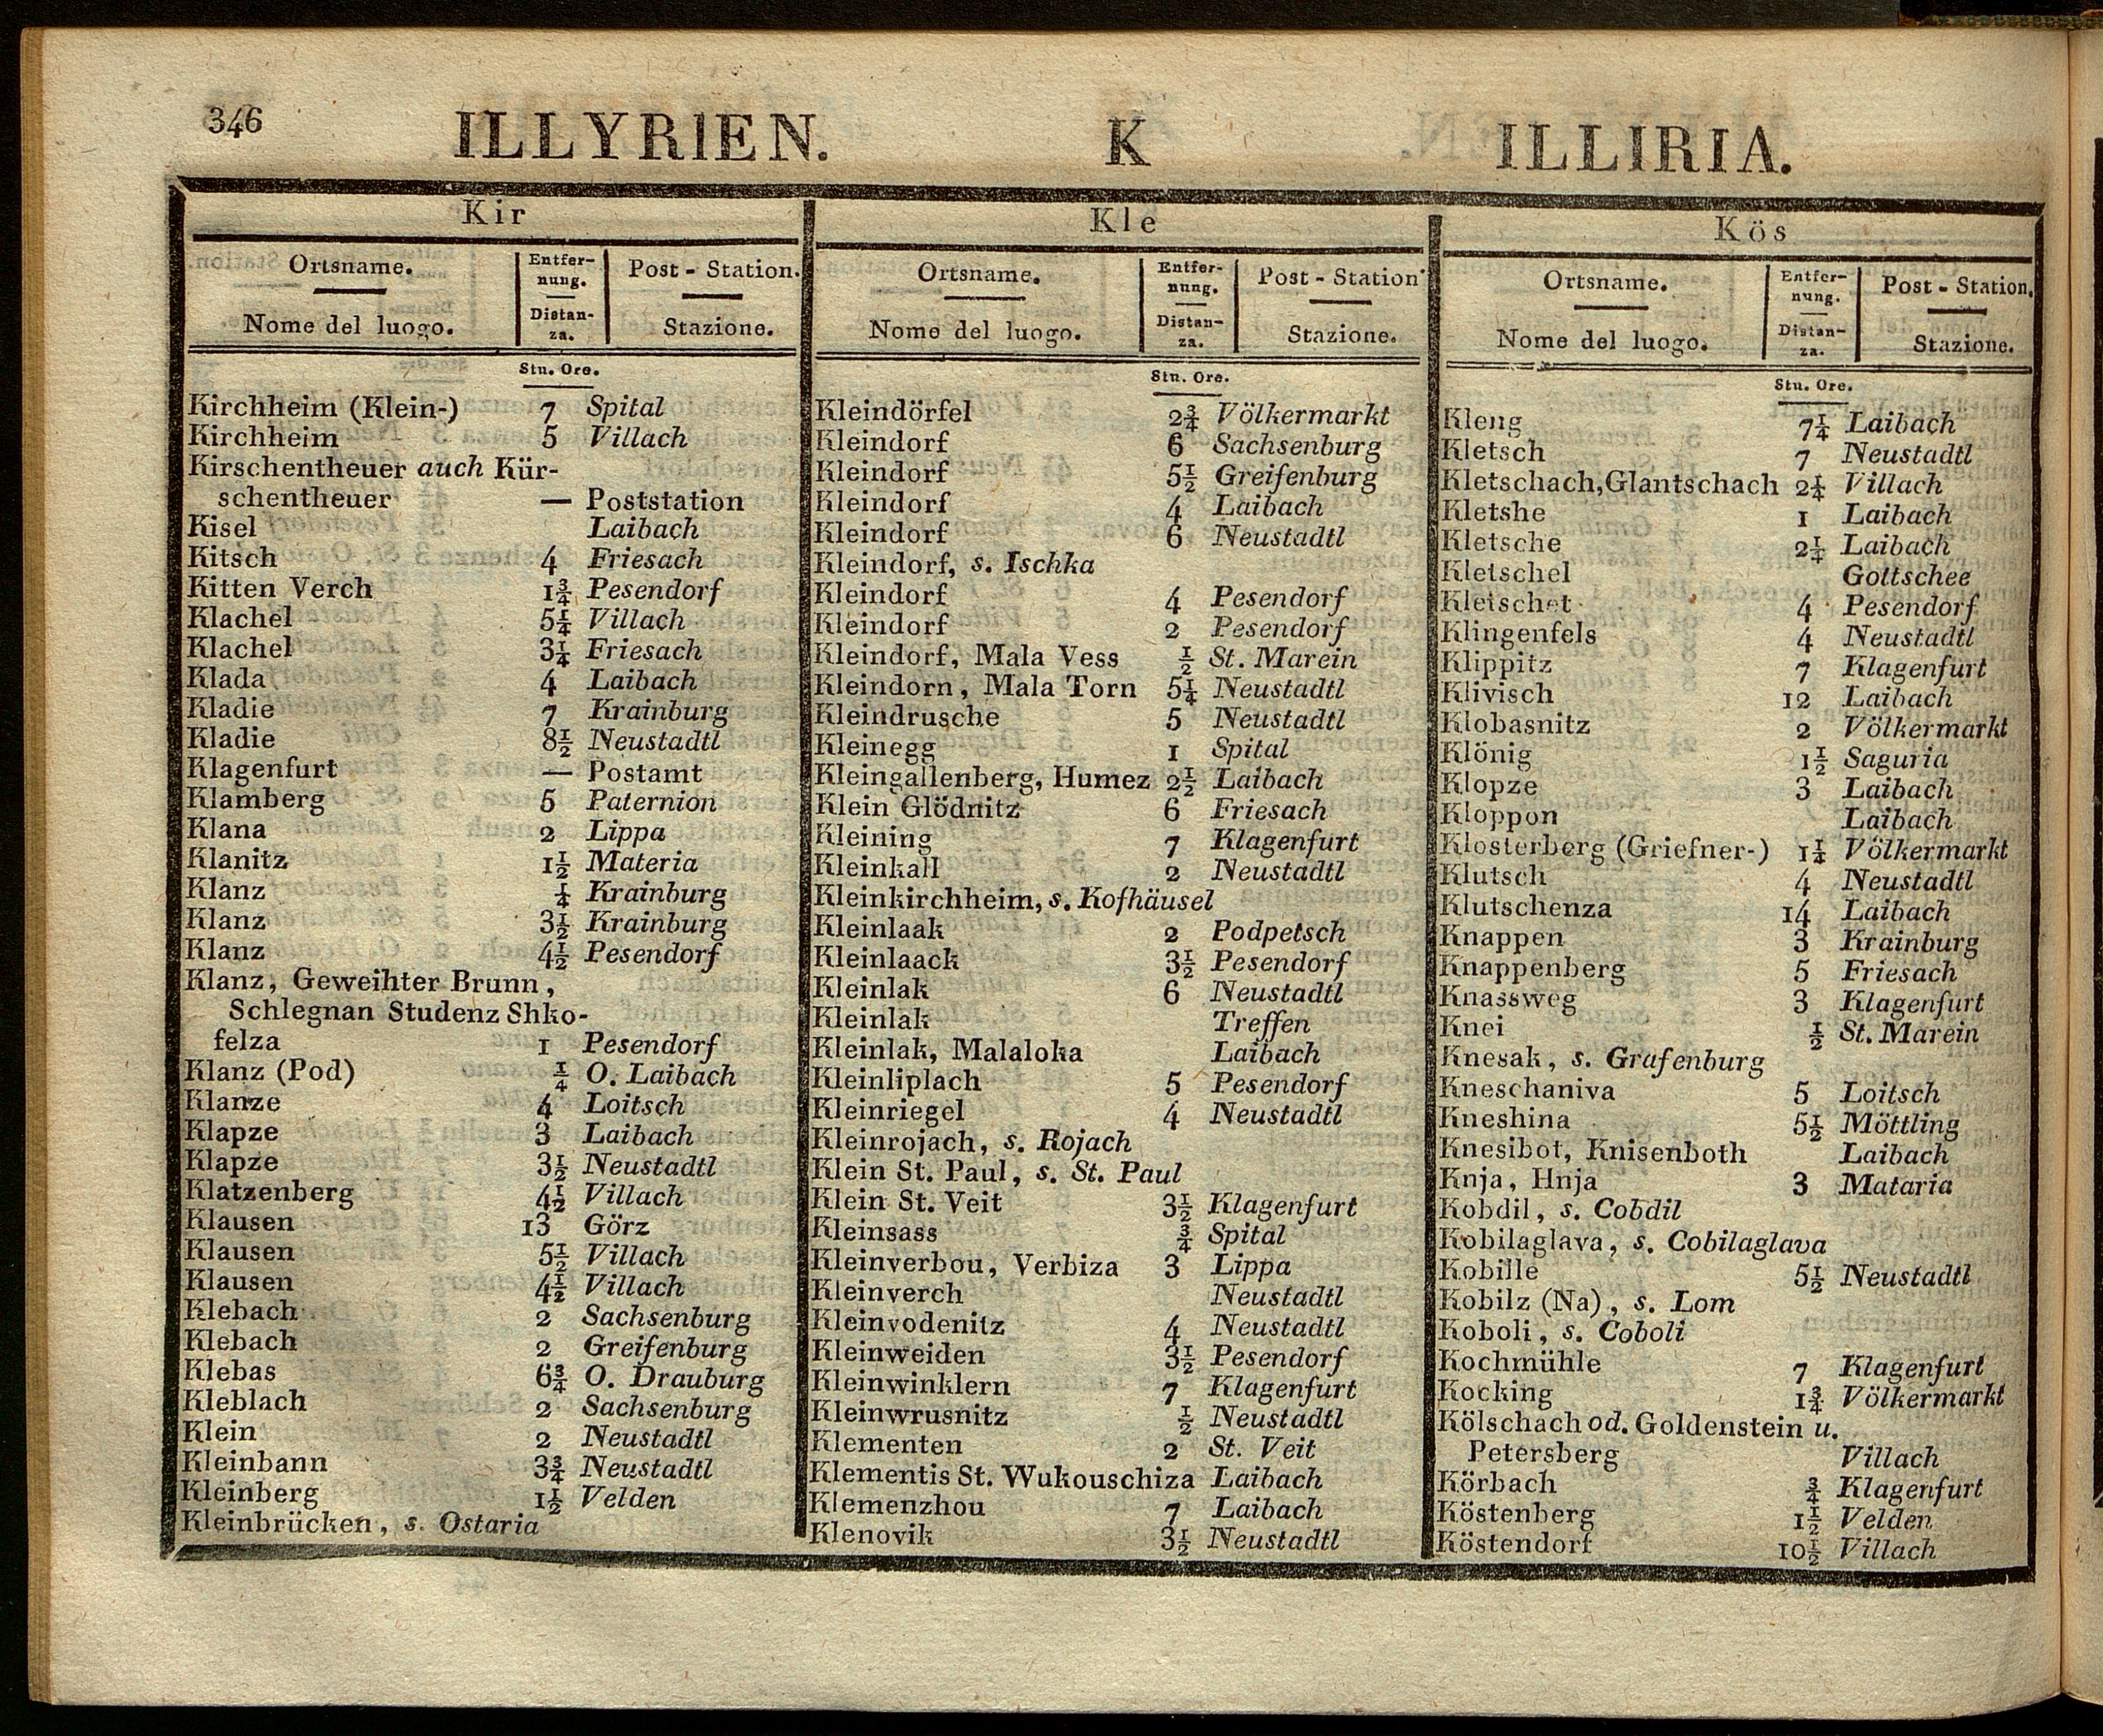 346
ILLYRIEN. K ILLIRIA.
Kir
Ortsname. Entfer- Post - Station.
nung.
Nome del luogo. Distan- Stazione.
za.
Stu. Ore.
Kirchheim (Klein-) 7 Spital
Kirchheim 5 Villach
Kirschentheuer auch Kür-
schentheuer — Poststation
Kisel Laibach
Kitsch 4 Friesach
Kitten Verch 1¾ Pesendorf
Klachel 5¼ Villach
Klachel 3¼ Friesach
Klada 4 Laibach
Kladie 7 Krainburg
Kladie 8½ Neustadtl
Klagenfurt — Postamt
Klamberg 5 Paternion
Klana 2 Lippa
Klanitz 1½ Materia
Klanz ¼ Krainburg
Klanz 3½ Krainburg
Klanz 4½ Pesendorf
Klanz, Geweihter Brunn,
Schlegnan Studenz Shko-
felza 1 Pesendorf
Klanz (Pod) ¼ O. Laibach
Klanze 4 Loitsch
Klapze 3 Laibach
Klapze 3½ Neustadtl
Klatzenberg 4½ Villach
Klausen 13 Görz
Klausen 5½ Villach
Klausen 4½ Villach
Klebach 2 Sachsenburg
Klebach 2 Greifenburg
Klebas 6¾ O. Drauburg
Kleblach 2 Sachsenburg
Klein 2 Neustadtl
Kleinbann 3¾ Neustadtl
Kleinberg 1½ Velden
Kleinbrücken, s. Ostaria
Kle
Ortsname. Entfer- Post - Station
nung.
Nome del luogo. Distan- Stazione.
za.
Stn. Ore.
Kleindörfel 2¾ Völkermarkt
Kleindorf 6 Sachsenburg
Kleindorf 5½ Greifenburg
Kleindorf 4 Laibach
Kleindorf 6 Neustadtl
Kleindorf, s. Ischka
Kleindorf 4 Pesendorf
Kleindorf 2 Pesendorf
Kleindorf, Mala Vess ½ St. Marein
Kleindorn, Mala Torn 5¼ Neustadtl
Kleindrusche 5 Neustadtl
Kleinegg 1 Spital
Kleingallenberg, Humez 2½ Laibach
Klein Glödnitz 6 Friesach
Kleining 7 Klagenfurt
Kleinkall 2 Neustadtl
Kleinkirchheim, s. Kofhäusel
Kleinlaak 2 Podpetsch
Kleinlaack 3½ Pesendorf
Kleinlak 6 Neustadtl
Kleinlak Treffen
Kleinlak, Malaloka Laibach
Kleinliplach 5 Pesendorf
Kleinriegel 4 Neustadtl
Kleinrojach, s. Rojach
Klein St. Paul, s. St. Paul
Klein St. Veit 3½ Klagenfurt
Kleinsass ¾ Spital
Kleinverbou, Verbiza 3 Lippa
Kleinverch Neustadtl
Kleinvodenitz 4 Neustadtl
Kleinweiden 3½ Pesendorf
Kleinwinklern 7 Klagenfurt
Kleinwrusnitz ½ Neustadtl
Klementen 2 St. Veit
Klementis St. Wukouschiza Laibach
Klemenzhou 7 Laibach
Klenovik 3½ Neustadtl
Kös
Ortsname. Entfer- Post - Station.
nung.
Nome del luogo. Distan- Stazione.
za.
Stu. Ore.
Kleng 7¼ Laibach
Kletsch 7 Neustadtl
Kletschach,Glantschach 2¼ Villach
Kletshe 1 Laibach
Kletsche 2¼ Laibach
Kletschel Gottschee
Kletschet 4 Pesendorf
Klingenfels 4 Neustadtl
Klippitz 7 Klagenfurt
Klivisch 12 Laibach
Klobasnitz 2 Völkermarkt
Klönig 1½ Saguria
Klopze 3 Laibach
Kloppon Laibach
Klosterberg (Griefner-) 1¼ Völkermarkt
Klutsch 4 Neustadtl
Klutschenza 14 Laibach
Knappen 3 Krainburg
Knappenberg 5 Friesach
Knassweg 3 Klagenfurt
Knei ½ St. Marein
Knesak, s. Grafenburg
Kneschaniva 5 Loitsch
Kneshina 5½ Möttling
Knesibot, Knisenboth Laibach
Knja, Hnja 3 Mataria
Kobdil, s. Cobdil
Kobilaglava, s. Cobilaglava
Kobille 5½ Neustadtl
Kobilz (Na), s. Lom
Koboli, s. Coboli
Kochmühle 7 Klagenfurt
Kocking 1¾ Völkermarkt
Kölschach od. Goldenstein u.
Petersberg Villach
Körbach ¾ Klagenfurt
Köstenberg 1½ Velden
Köstendorf 10½ Villach